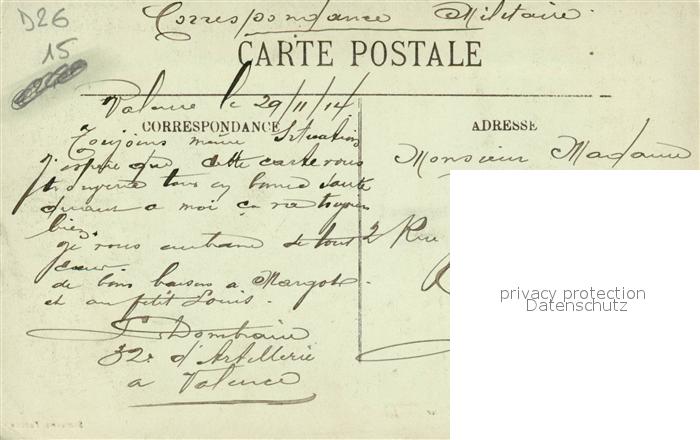 D26
15
Correspondance Militaire
CARTE POSTALE
Valence le 29/11/14
CORRESPONDANCE
Toujours même Situation
J'espère que cette carte vous
trouvera tous en bonne santé
quant a moi ça va toujours
bien.
je vous embrasse de tout
cœur.
de bons baisers a Margot
et au petit Louis.
32e d'Artillerie
a Valence
ADRESSE
Monsieur Madame
2 Rue
privacy protection
Datenschutz